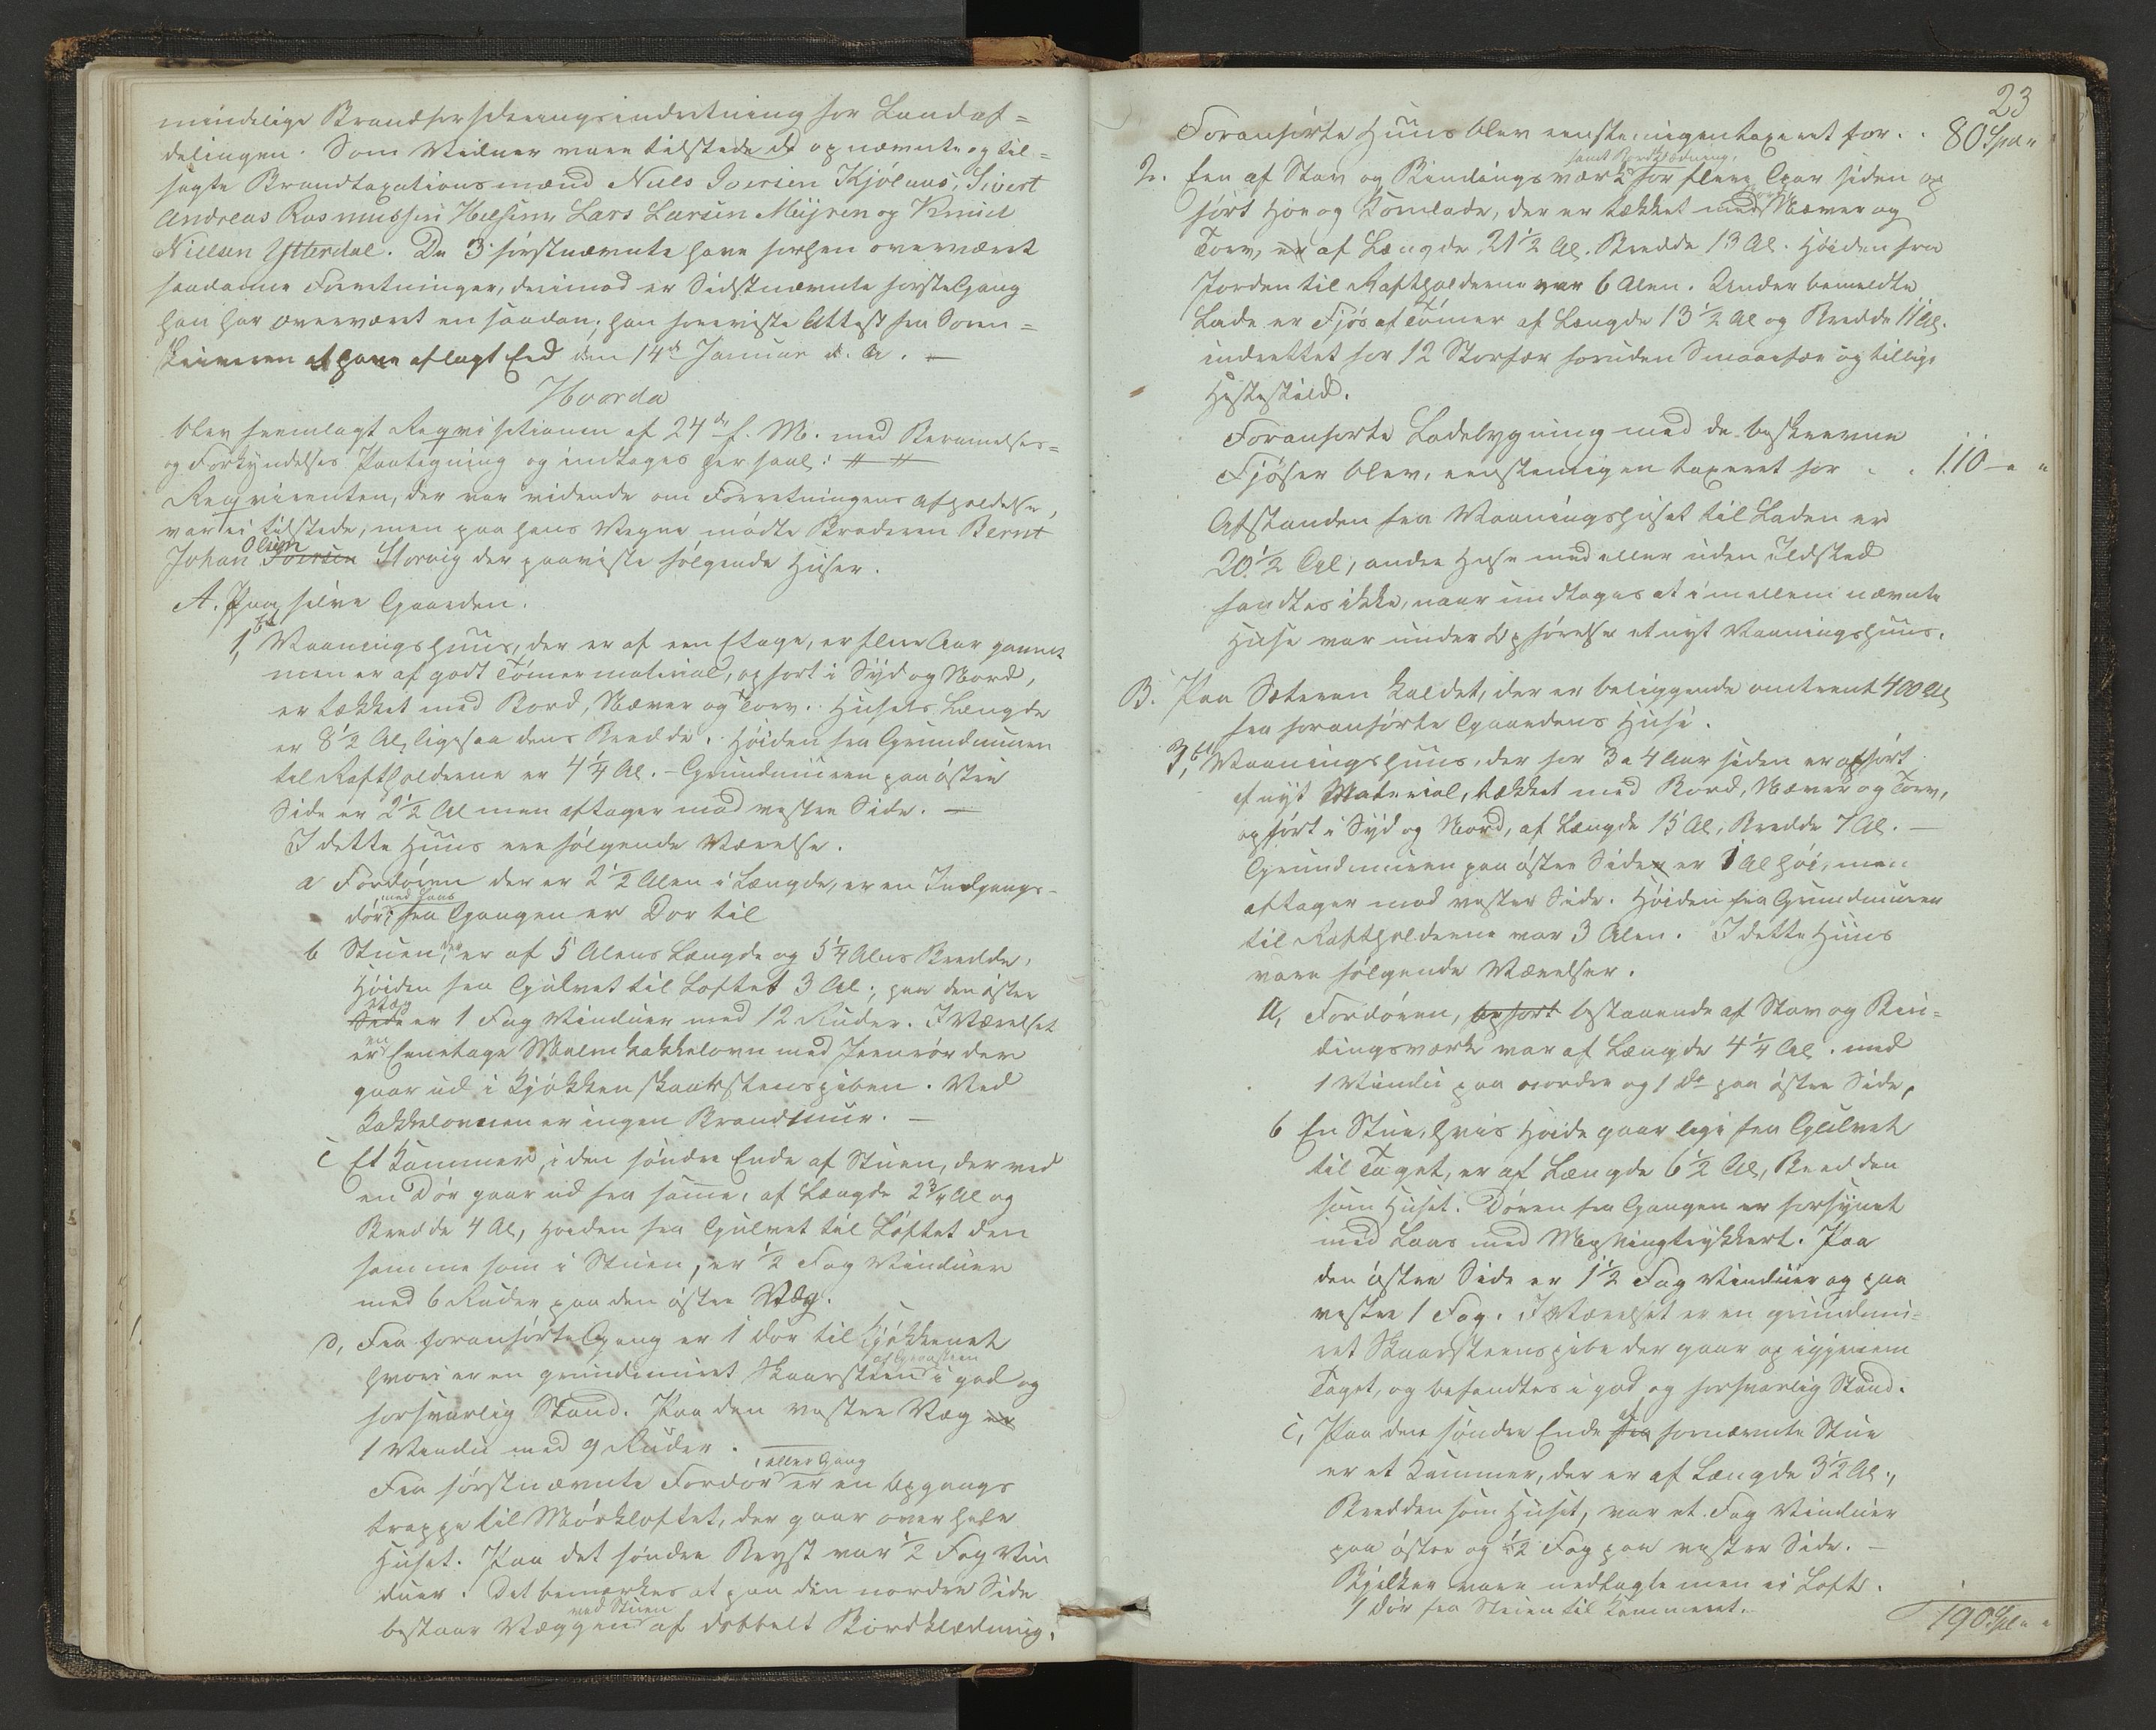 mindelige Brandforsikringsindretning for Landaf=
delingen. Som Vidner vare tilstede de opnævnte og til=
sagte Brandtaxationsmænd Niels Iversen Kjølaas, Sivert
Andreas Rasmussen Helsem Lars Larsen Meyren og Knud
Nielsen Ytterdal. De 3 førstnævnte have forhen overværet
saadanne Forretninger, derimod er Sidstnævnte første Gang
han har overværet en saadan; han foreviste Attest fra Soren=
skriveren at have aflagt Eed den 14de Januar d. A. —
Hvorda
blev fremlagt Reqvisitionen af 24de f. M. med Berammelses=
og Forkyndelses Paategning og indtages her saal: # #
Reqvirenten, der var vidende om Forretningens Afholdelse,
var ei tilstede, men paa hans Vegne mødte Broderen Bernt
Johan Iversen Olsen Storvig der paaviste følgende Huser.
A. Paa selve Gaarden.
1, Et Vaaningshuus, der er af een Etage, er flere Aar gammelt
men er af godt Tømermaterial, opført i Syd og Nord,
er tækket med Bord, Næver og Torv. Husets Længde
er 8½ Al, ligesaa dens Bredde. Høiden fra Grundmuren
til Raftholderne er 4¼ Al. — Grundmuren paa østre
Side er 2½ Al men aftager mod vestre Side. —
I dette Huus ere følgende Værelse.
a Fordøren der er 2½ Alen i Længde, er en Indgangs-
dør, med Laas; fra Gangen er Dør til
b Stuen, der er af 5 Alens Længde og 5¼ Alns Bredde,
Høiden fra Gulvet til Loftet 3 Al.; paa den østre
Side Væg er 1 Fag Vinduer med 12 Ruder. I Værelset
er en Eenetage Malmkakkelovn med Jernrør der
gaar ud i Kjøkkenskaarstenspiben. Ved
Kakkelovnen er ingen Brandmuur. —
c Et Kammer, i den søndre Ende af Stuen, der ved
en Dør gaar ud fra samme, af Længde 2¾ Al og
Bredde 4 Al, Høiden fra Gulvet til Loftet den
samme som i Stuen, er ½ Fag Vinduer
med 6 Ruder paa den østre Væg.
D, Fra foranførte Gang er 1 Dør til Kjøkkenet
hvori er en grundmuret Skaarsteen af Graasteen i god og
forsvarlig Stand. Paa den vestre Væg er
1 Vindu med 9 Ruder. —
Fra førstnævnte Fordør, eller Gang er en Opgangs
trappe til Mørkloftet, der gaar over hele
Huset. Paa det søndre Røyst var ½ Fag Vin
duer. Det bemærkes at paa den nordre Side
bestaar Væggen ved Stuen af dobbelt Bordklædning.
23
Foranførte Huus blev eenstemmigen taxeret for . . 80 Spd "
2. Een af Stav og Bindingsværk samt Bordklædning, for flere Aar siden op
ført Høe og Kornlade, der er tækket med Næver og
Torv, er af Længde 21½ Al. Bredde 13 Al. Høiden fra
Jorden til Raftholderne var 6 Alen. Under bemeldte
Lade er Fjøs af Tømer af Længde 13½ Al og Bredde 11 Al.
indrettet for 12 Storfæ foruden Smaafæe og tillige
Hestestald.
Foranførte Ladebygning med de beskrevne
Fjøser blev, eenstemigen taxeret for . . 110 — " "
Afstanden fra Vaaningshuset til Laden er
20½ Al; andre Huse med eller uden Ildsted
fandtes ikke, naar undtages at imellem nævnte
Huse var under Opførelse et nyt Vaaningshuus.
B. Paa Sæteren kaldet, der er beliggende omtrent 400 Al
fra foranførte Gaardens Huse.
3, Et Vaaningshuus, der for 3 a 4 Aar siden er opført
af nyt Material, tækket med Bord, Næver og Torv,
opført i Syd og Nord, af Længde 15 Al, Bredde 7 Al. —
Grundmuren paa østre Side er 1 Al høi, men
aftager mod vestre Side. Høiden fra Grundmuren
til Raftholderne var 3 Alen. I dette Huus
vare følgende Værelser.
a, Fordøren, opført bestaaende af Stav og Bin=
dingsværk var af Længde 4¼ Al. med
1 Vindu paa nordre og 1 do paa østre Side,
b En Stue, hvis Høide gaar lige fra Gulvet
til Taget, er af Længde 6½ Al, Bredden
som Huset. Døren fra Gangen er forsynet
med Laas med Messingtrykkert. Paa
den østre Side er 1½ Fag Vinduer og paa
vestre 1 Fag. I Værelset er en grundmu=
ret Skaarsteenspibe der gaar op igjenem
Taget, og befandtes i god og forsvarlig Stand.
c, Paa den søndre Ende fra af fornævnte Stue
er et Kammer, der er af Længde 3½ Al.,
Bredden som Huset, var et Fag Vinduer
paa østre og ½ Fag paa vestre Side. —
Bjelker vare nedlagte men ei Loft.
1 Dør fra Stuen til Kammeret.
190 Spd " "